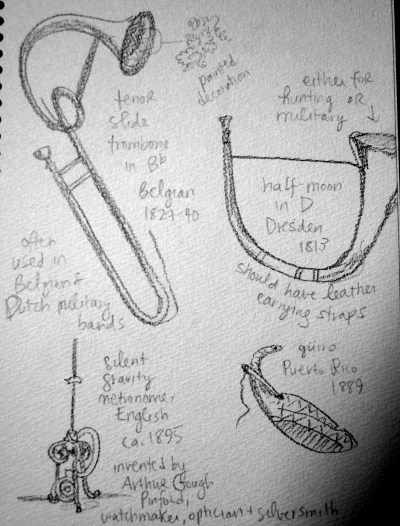 painted
decoration
tenor
slide
trombone
in Bb
Belgian
1827-40
often
used in
Belgian &
Dutch military
bands
either for
hunting OR
military
half-moon
in D
Dresden
1813
should have leather
carrying straps
silent
gravity
metronome,
English
ca. 1895
invented by
Arthur Clough
Pinfold,
watchmaker, optician + silversmith
güiro
Puerto Rico
1889